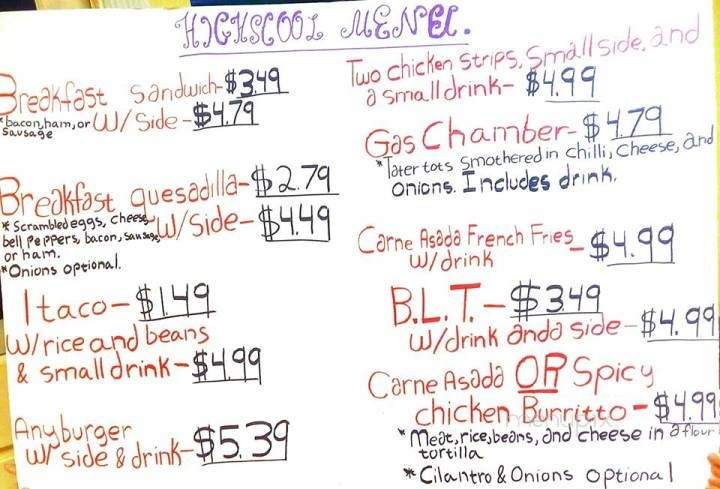 HIGHSCOOL MENU.
Breakfast sandwich-$3.49
*bacon,ham,or W/ Side-$4.79
Sausage
Breakfast quesadilla-$2.79
*Scrambled eggs, cheese, W/Side-$4.49
bell peppers, bacon, sausage,
or ham.
*Onions optional.
1 taco-$1.49
W/rice and beans
& small drink-$4.99
Any burger
W/ side & drink-$5.39
Two chicken strips, Small side, and
a small drink-$4.99
Gas Chamber-$4.79
*Tater tots smothered in chilli, cheese, and
onions. Includes drink.
Carne Asada French Fries-$4.99
w/drink
B.L.T.-$3.49
w/drink and a side-$4.99
Carne Asada OR Spicy
chicken Burritto-$4.99
*Meat,rice,beans, and cheese in a flour
tortilla
*Cilantro & Onions optional